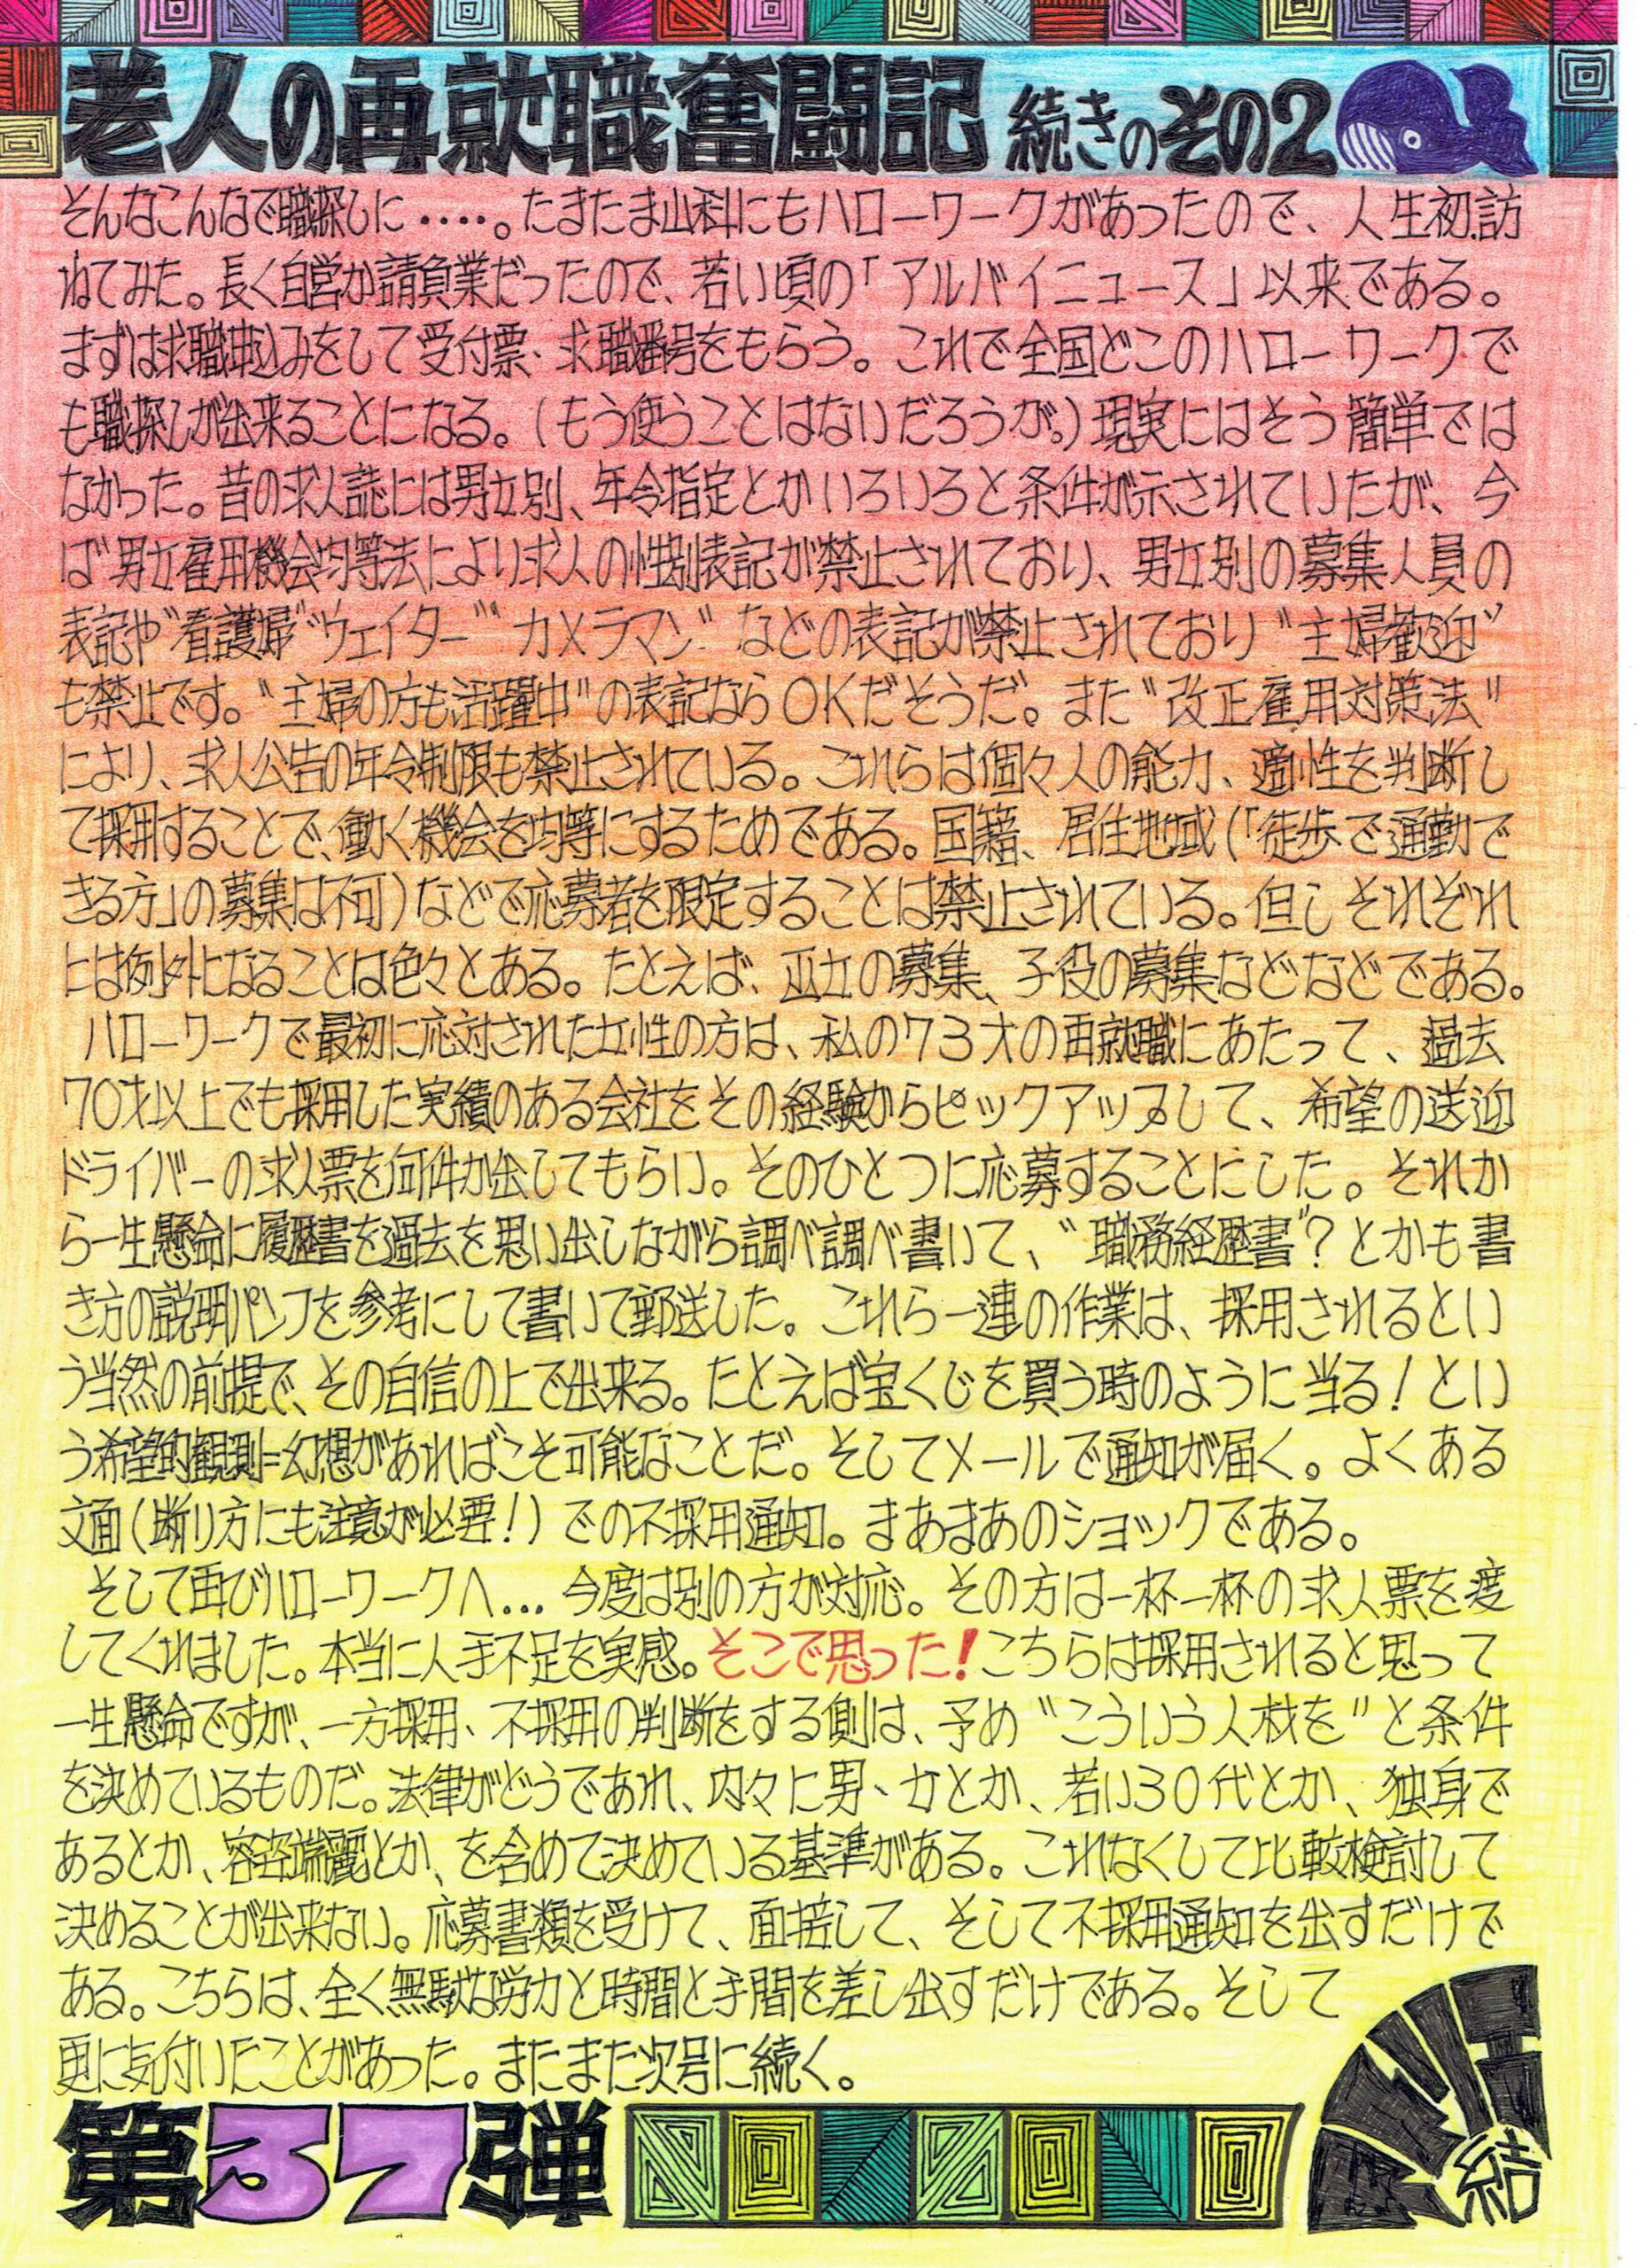 老人の再就職奮闘記 続きのその2
そんなこんなで職探しに・・・・。たまたま山科にもハローワークがあったので、人生初訪
ねてみた。長く自営か請負業だったので、若い頃の「アルバイニュース」以来である。
まずは求職申込みをして受付票、求職番号をもらう。これで全国どこのハローワークで
も職探しが出来ることになる。(もう使うことはないだろうが。)現実にはそう簡単では
なかった。昔の求人誌には男女別、年令指定とかいろいろと条件が示されていたが、今
は"男女雇用機会均等法により求人の性別表記が禁止されており、男女別の募集人員の
表記や"看護婦"ウェイター""カメラマン"などの表記が禁止されており"主婦歓迎"
も禁止です。"主婦の方も活躍中"の表記ならOKだそうだ。また"改正雇用対策法"
により、求人公告の年令制限も禁止されている。これらは個々人の能力、適性を判断し
て採用することで、働く機会を均等にするためである。国籍、居住地域(「徒歩で通勤で
きる方」の募集は不可)などで応募者を限定することは禁止されている。但しそれぞれ
には例外になることは色々とある。たとえば、巫女の募集、子役の募集などなどである。
ハローワークで最初に応対された女性の方は、私の73才の再就職にあたって、過去
70才以上でも採用した実績のある会社をその経験からピックアップして、希望の送迎
ドライバーの求人票を何件か出してもらい。そのひとつに応募することにした。それか
ら一生懸命に履歴書を過去を思い出しながら調べ調べ書いて、"職務経歴書"?とかも書
き方の説明パンフを参考にして書いて郵送した。これら一連の作業は、採用されるとい
う当然の前提で、その自信の上で出来る。たとえば宝くじを買う時のように当る!とい
う希望的観測=幻想があればこそ可能なことだ。そしてメールで通知が届く。よくある
文面(断り方にも注意が必要!)での不採用通知。まあまあのショックである。
そして再びハローワークへ...今度は別の方が対応。その方は一杯一杯の求人票を渡
してくれました。本当に人手不足を実感。そこで思った!こちらは採用されると思って
一生懸命ですが、一方採用、不採用の判断をする側は、予め"こういう人材を"と条件
を決めているものだ。法律がどうであれ、内々に男、女とか、若い30代とか、独身で
あるとか、容姿端麗とか、を含めて決めている基準がある。これなくして比較検討して
決めることが出来ない。応募書類を受けて、面接して、そして不採用通知を出すだけで
ある。こちらは、全く無駄な労力と時間と手間を差し出すだけである。そして
更に気付いたことがあった。またまた次号に続く。
第37弾
結